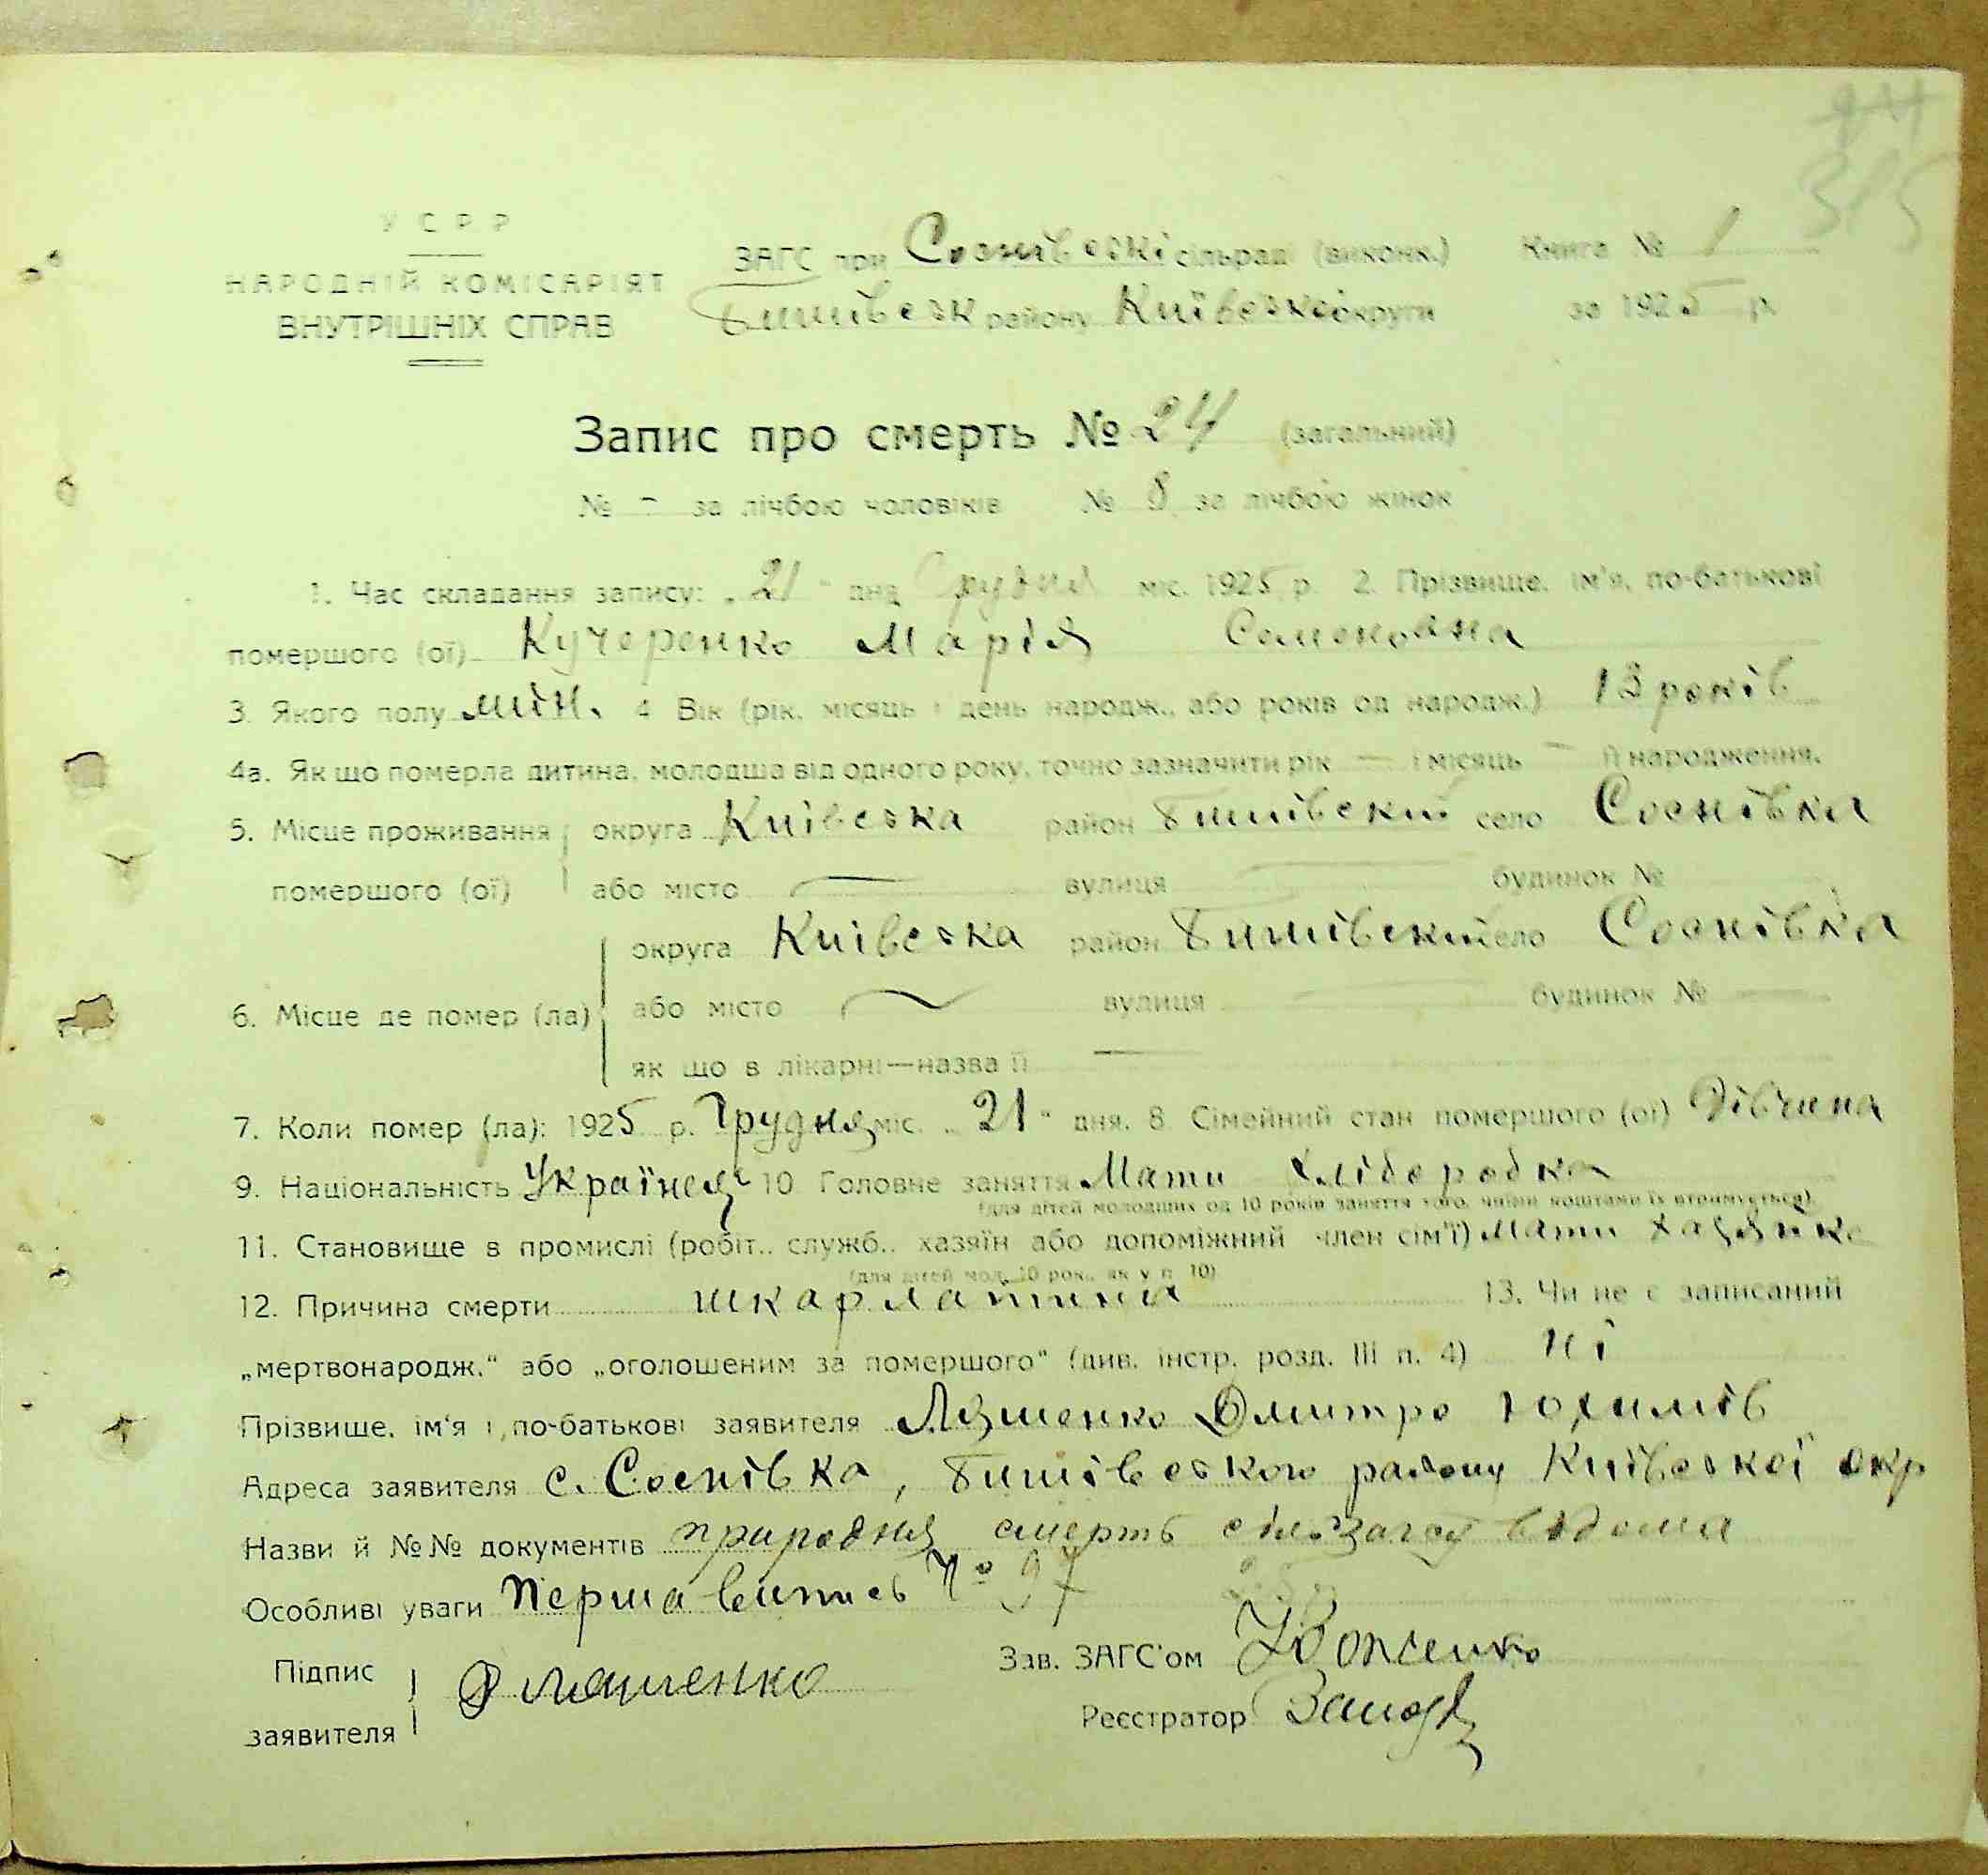 315
У С Р Р
НАРОДНІЙ КОМІСАРІЯТ
ВНУТРІШНІХ СПРАВ
ЗАГС при Соснівські сільраді (виконк.) Книга № 1
Бишівськ району Київської округи за 1925 р.
Запис про смерть № 24 (загальний)
№ - за лічбою чоловіків № 8 за лічбою жінок
1. Час складання запису: „21" дня Грудня міс. 1925 р. 2. Прізвище, ім'я, по-батькові
помершого (ої) Кучеренко Марія Семеновна
3. Якого полу жін. 4 Вік (рік, місяць і день народж., або років од народж.) 13 років
4а. Як що померла дитина, молодша від одного року, точно зазначити рік — і місяць — її народження.
5. Місце проживання округа Київська район Бишівский село Соснівка
помершого (ої) або місто — вулиця — будинок №
округа Київська район Бишівский село Соснівка
6. Місце де помер (ла) або місто — вулиця — будинок № —
як що в лікарні—назва її —
7. Коли помер (ла): 1925 р. Грудня міс. „21" дня. 8. Сімейний стан помершого (ої) Дівчина
9. Національність Українец 10 Головне заняття Мати хліборобка
(для дітей молодших од 10 років заняття того, чиїми коштами їх втримується)
11. Становище в промислі (робіт., служб., хазяїн або допоміжний член сім'ї) Мати хазяйка
(для дітей мол. 10 рок., як у п. 10)
12. Причина смерти шкарлатина 13. Чи не є записаний
„мертвонародж." або „оголошеним за помершого" (див. інстр. розд. III п. 4) ні
Прізвище, ім'я і по-батькові заявителя Ляшенко Дмитро Юхимів
Адреса заявителя с. Соснівка, Бишівського району Київської окр
Назви й №№ документів природня смерть сільзагсу відома
Особливі уваги Перша випись № 97
Підпис
заявителя Д Ляшенко
Зав. ЗАГС'ом
Реєстратор